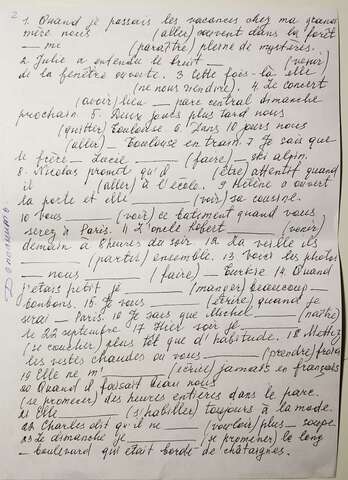 2
1. Quand je passais les vacances chez ma grand
mère nous ________ (aller) souvent dans la forêt
__ me ________ (paraître) pleine de mystères.
2. Julie a entendu le bruit __ ________ (venir)
de la fenêtre ouverte. 3 Cette fois-là elle
________ (ne nous rendre). 4. Le concert
________ (avoir) lieu __ parc central dimanche
prochain. 5. Deux jours plus tard nous
________ (quitter) Toulouse 6. Dans 10 jours nous
________ (aller) __ Toulouse en train. 7 Je sais que
le frère __ Lucie ________ (faire) __ ski alpin.
8. Nicolas promit qu'il ________ (être) attentif quand
il ________ (aller) à l'école. 9 Hélène a ouvert
la porte et elle ________ (voir) sa cousine.
10 Vous ________ (voir) ce bâtiment quand vous
serez à Paris. 11 L'oncle Robert ________ (venir)
demain à 8 heures du soir. 12 La veille ils
________ (partir) ensemble. 13 Voici les photos
__ nous ________ (faire) __ Turkie. 14 Quand
j'étais petit je ________ (manger) beaucoup __
bonbons. 15 Je vous ________ (écrire) quand je
serai __ Paris. 16 Je sais que Michel ________ (naître)
le 22 septembre 17 Hier soir je ________
(se coucher) plus tôt que d'habitude. 18 Mettez
les vestes chaudes ou vous ________ (prendre) froid
19 Elle ne m'________ (écrire) jamais en français
20 Quand il faisait beau nous ________
(se promener) des heures entières dans le parc.
21 Elle ________ (s'habiller) toujours à la mode.
22 Charles dit qu'il ne ________ (vouloir) plus __ soupe
23 Le dimanche je ________ (se promener) le long
__ boulevard qui était bordé de châtaignes.